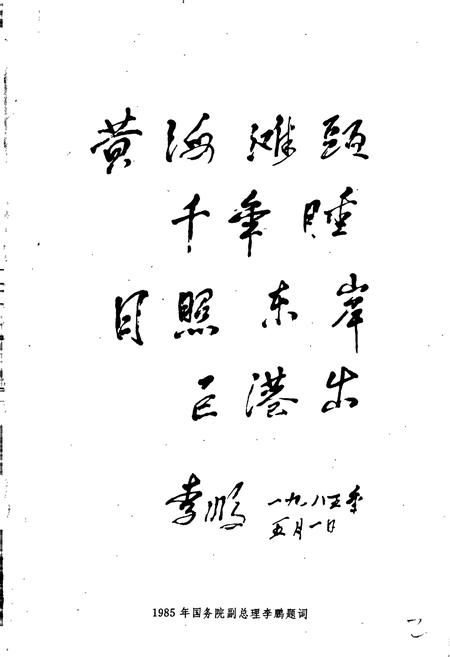 黄海滩头
千年睡
日照东岸
巨港出
李鹏 一九八五年
五月一日
1985年国务院副总理李鹏题词